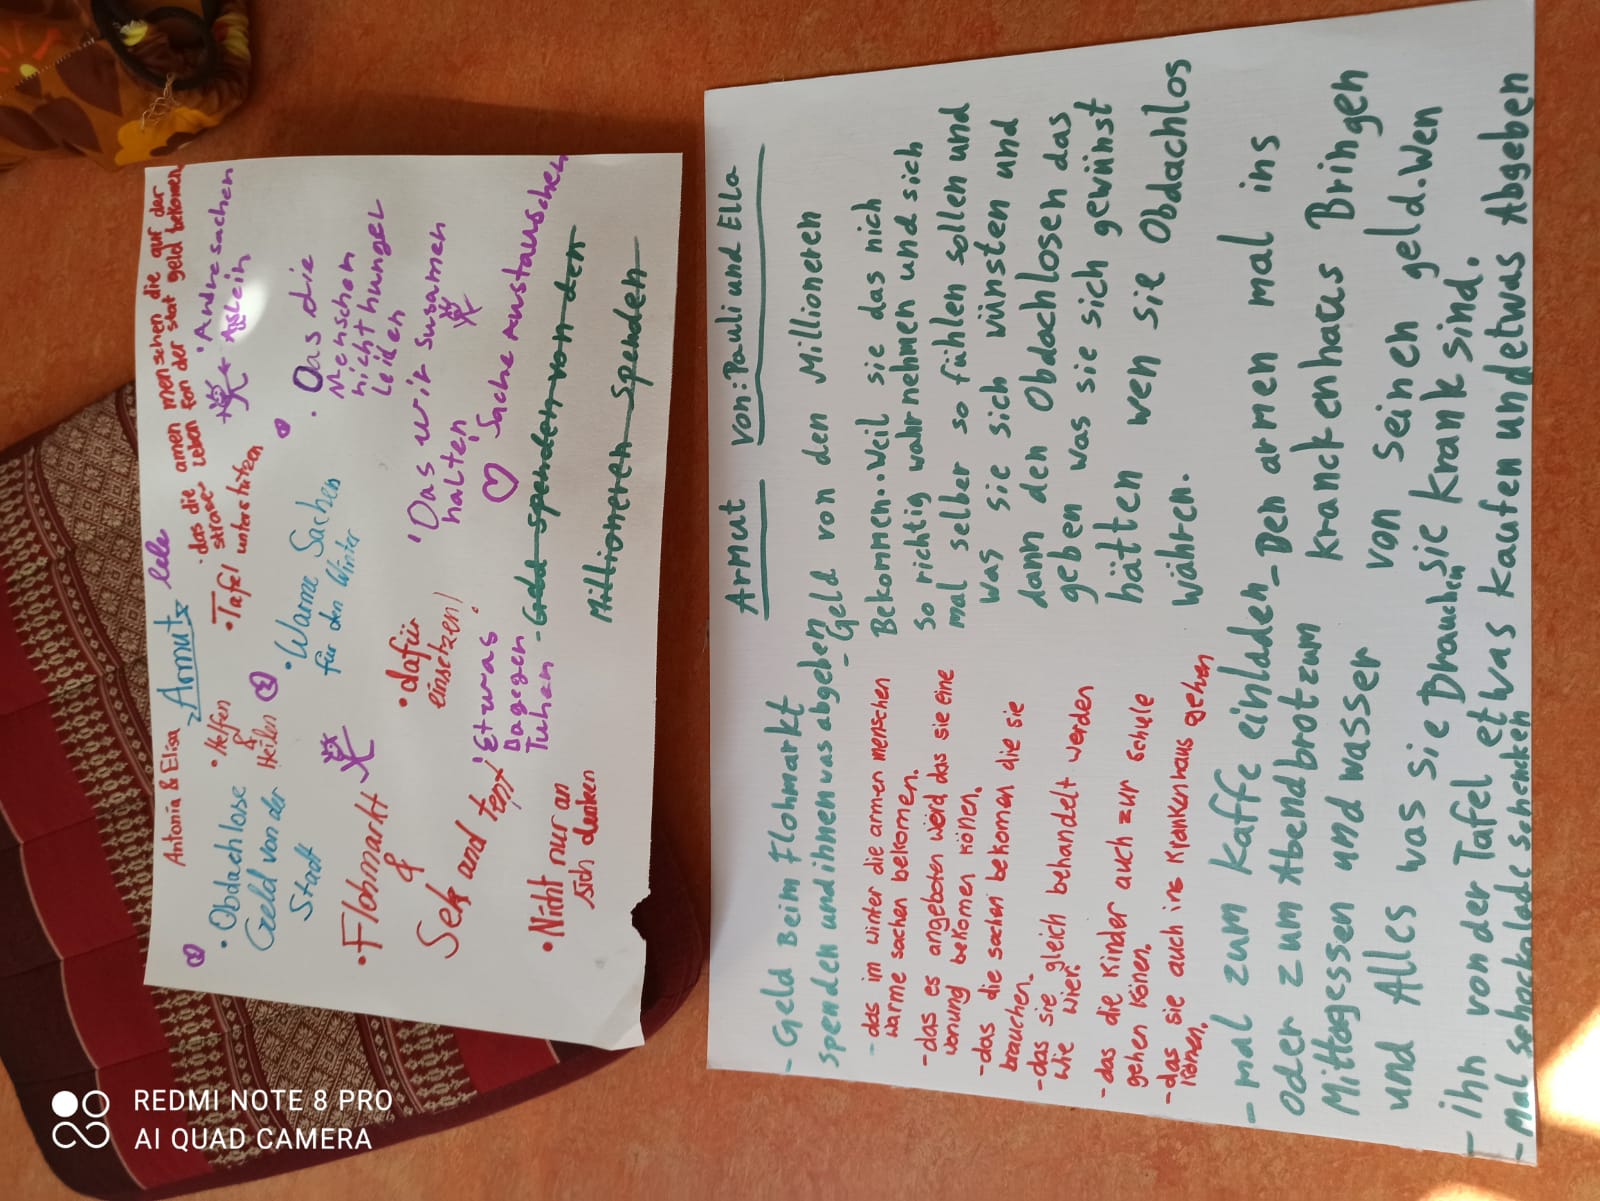 Antonia & Elisa
Armut
lele
• Obdachlose
Geld von der
Stadt
• Helfen
&
Heilen
• das die armen menschen die auf der
strase leben fon der stat geld bekomen
• Tafel unterstützen
• Andre sachen
• Warme Sachen
für den Winter
• Das die
Menschen
nicht hunger
leiden
• Flohmarkt
&
• dafür
einsetzen!
• Das wir susamen
halten
• Etwas
Dagegen
Tuhen
Sache Austauschen
- Geld spenden von den
Millioneren spenden
• Nicht nur an
sich denken
Armut Von: Pauli und Ella
- Geld Beim Flohmarkt
spenden und ihnen was abgeben
- das im winter die armen menschen
warme sachen bekomen.
- das es angeboten wérd das sie eine
wonung bekomen könen.
- das die sachen bekomen die sie
brauchen.
- das sie gleich behandelt werden
wie wier.
- das die Kinder auch zur schule
gehen könen.
- das sie auch ins Krankenhaus gehen
könen.
- Geld von den Millioneren
Bekommen.. Weil sie das nich
so richtig wahrnehmen und sich
mal selber so fühlen sollen und
was sie sich vünsten und
dann den Obdachlosen das
geben was sie sich gewünst
hätten wen sie Obdachlos
währen.
- mal zum Kaffe einladen
oder zum Abendbrot zum
Mittagessen und wasser
und Alles was sie Brauchen
- Den armen mal ins
kranckenhaus Bringen
von seinen geld. Wen
sie krank sind.
- ihn von der Tafel etwas kaufen und etwas Abgeben
- Mal schockolade schencken
REDMI NOTE 8 PRO
AI QUAD CAMERA